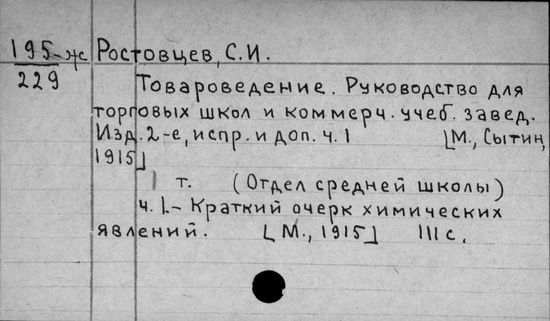 195-ж Ростовцев, С.И.
229
Товароведение. Руководство для
торговых школ и коммерч. учеб. завед.
Изд. 2-е, испр. и доп. ч. 1 [М., Сытин,
1915]
1 т. (Отдел средней школы)
ч. I.- Краткий очерк химических
явлений. [М., 1915] 111 с.